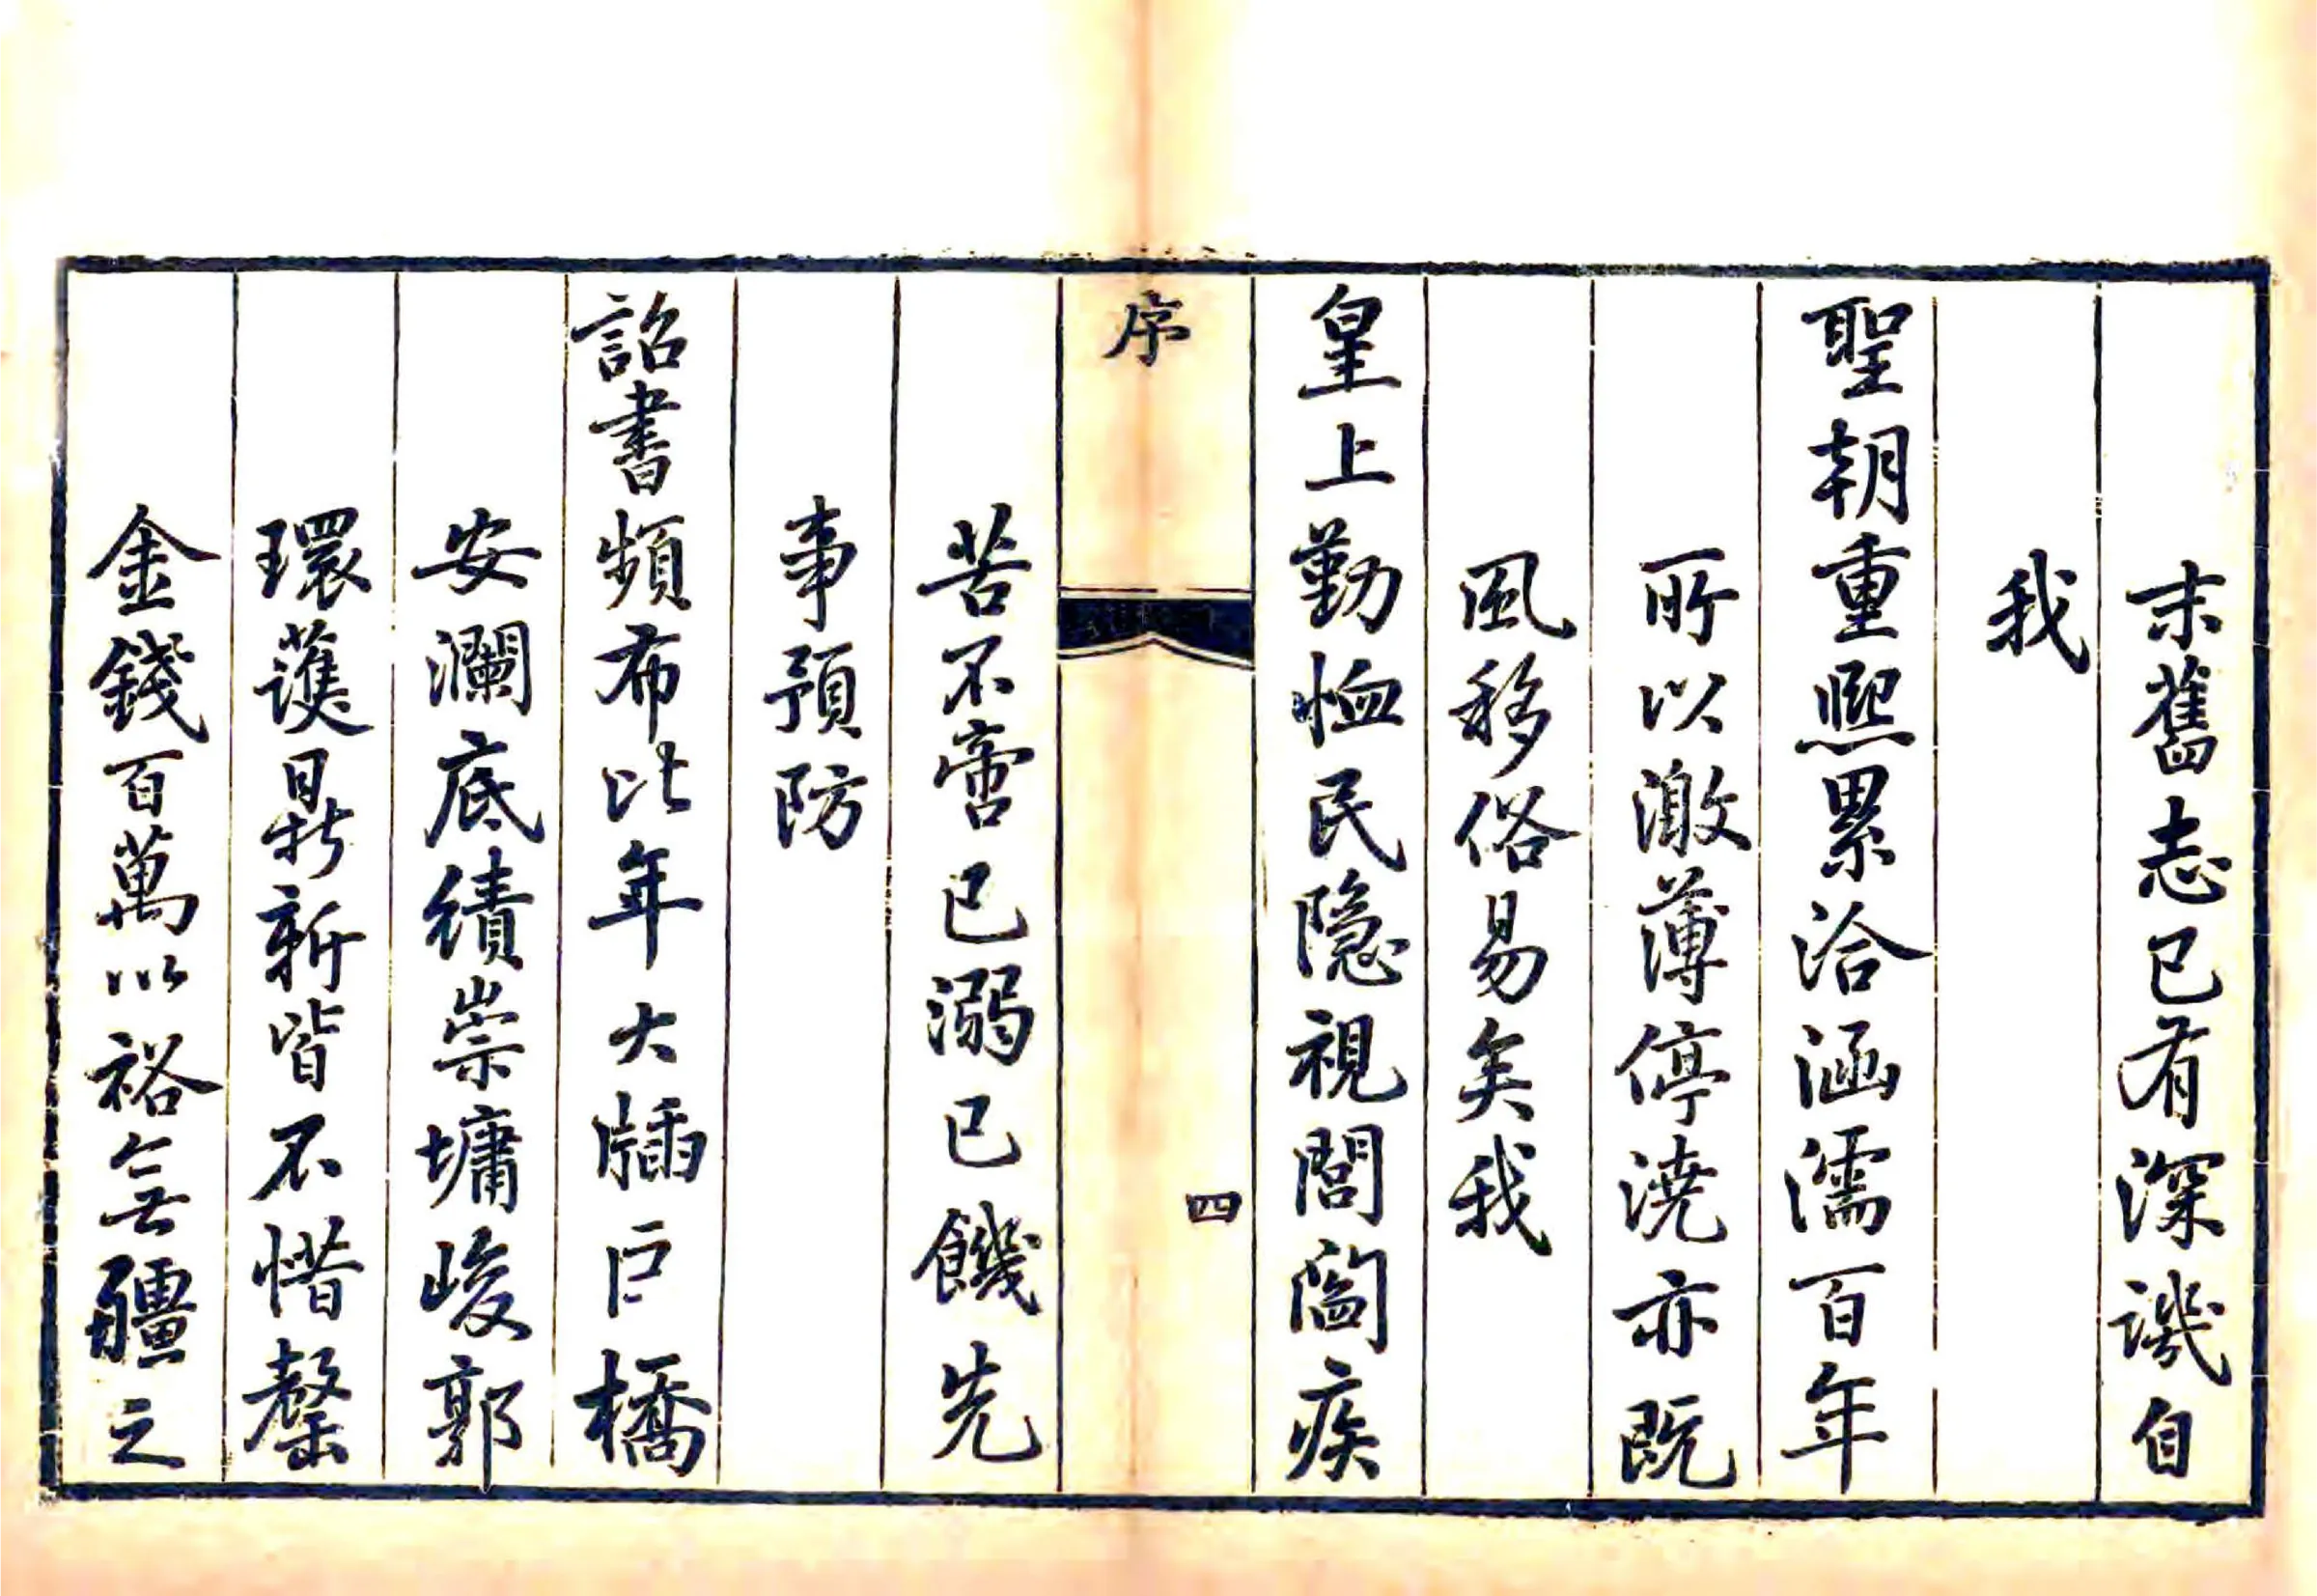 末舊志已有深譏自
我
聖朝重熙累洽涵濡百年
所以激薄停澆亦既
風移俗易矣我
皇上勤恤民隱視閭閻疾
序
四
苦不啻已溺已饑先
事預防
詔書頻布比年大牐巨橋
安瀾底績崇墉峻郭
環護鼎新皆不惜罄
金錢百萬以裕無疆之